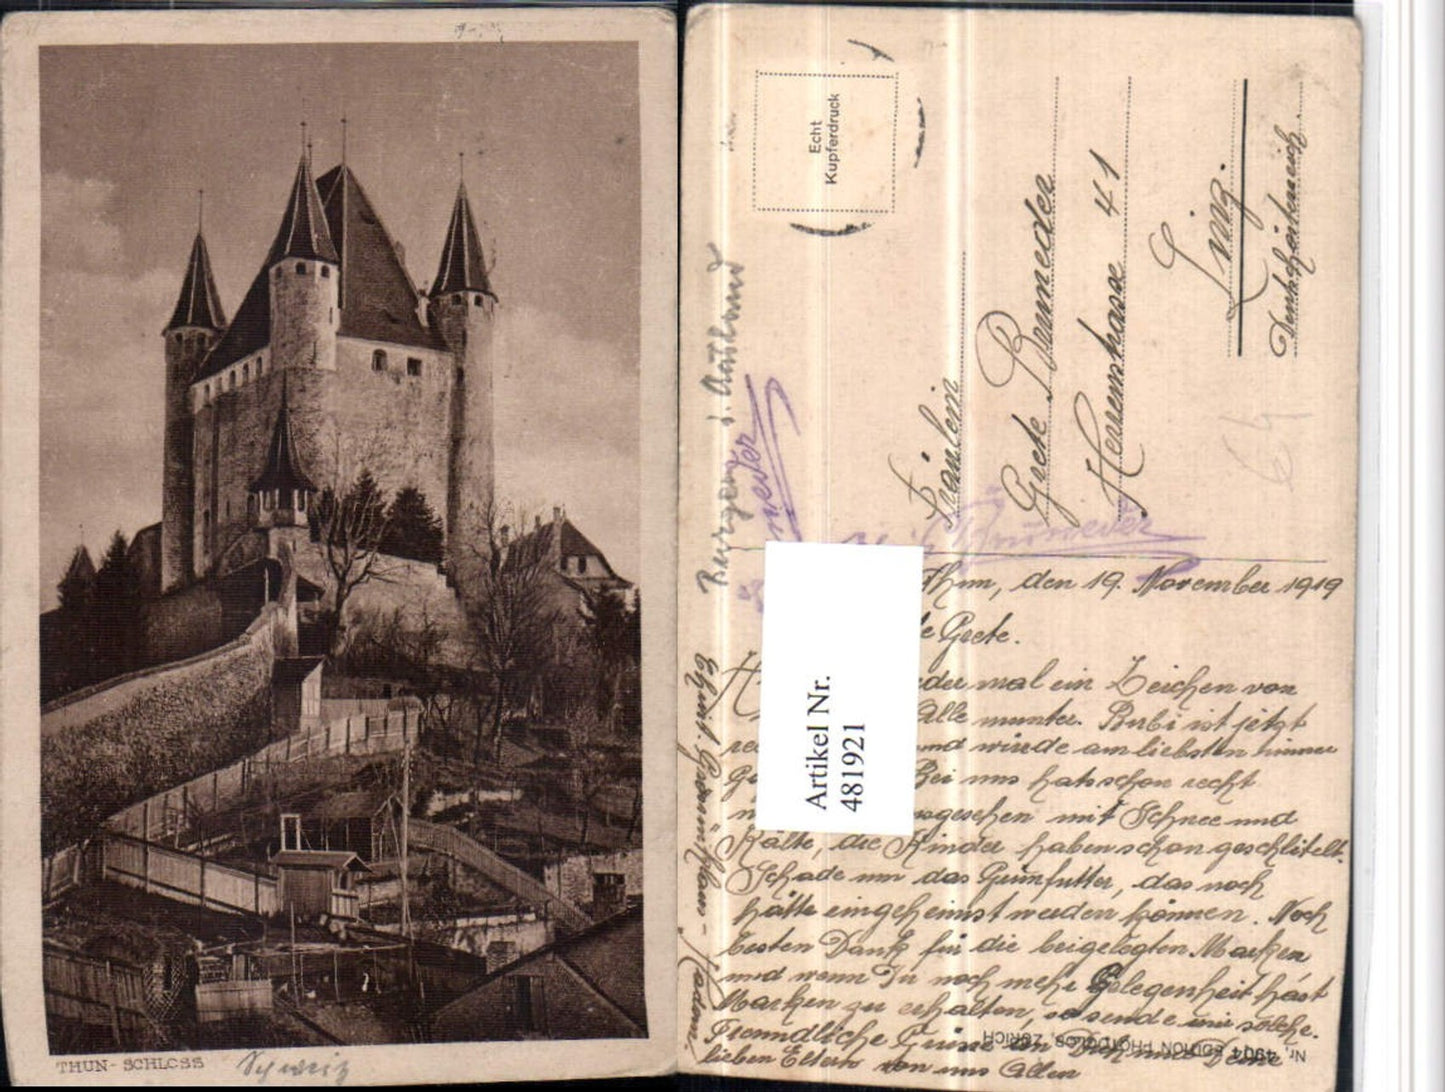 THUN-SCHLOSS
Schweiz
Echt
Kupferdruck
Fräulein
Grete Brunneder
Herrenstrasse 41
Linz.
Deutschösterreich.
64
Burgen i. Ausland
Artikel Nr.
481921
Thun, den 19. November 1919
Grete.
mal ein Zeichen von
Alle munter. Bubi ist jetzt
und würde am liebsten immer
Bei uns hats schon recht
ausgesehen mit Schnee und
Kälte, die Kinder haben schon geschlittelt.
Schade um das Grünfutter, das noch
hätte eingeheimst werden können. Noch
besten Dank für die beigelegten Marken
und wenn Du noch mehr Gelegenheit hast
Marken zu erhalten, so sende mir solche.
Freundliche Grüsse an Dich und Deine
lieben Eltern von uns Allen
Nr. 4904 EDITION PHOTOGLOB, ZÜRICH